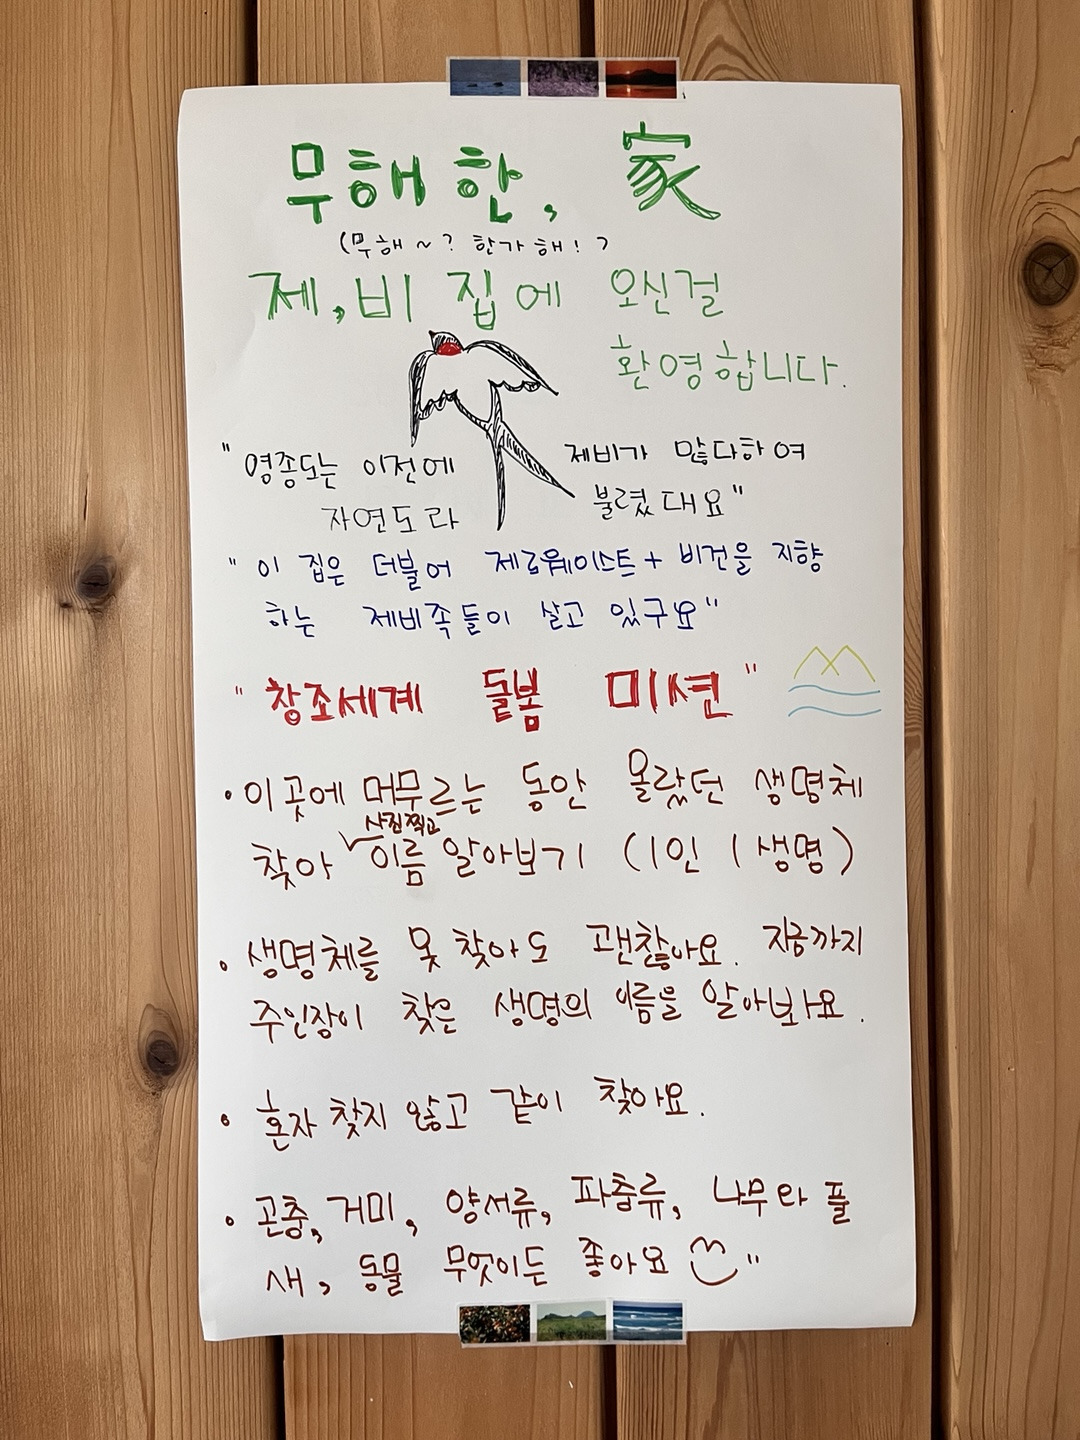 무해한, 家
(무해~? 한가해!?
제,비 집에 오신걸
환영합니다.
"영종도는 이전에 제비가 많다하여
자연도라 불렸대요"
"이 집은 더불어 제로웨이스트+비건을 지향
하는 제비족들이 살고 있구요"
"창조세계 돌봄 미션"
· 이곳에 머무르는 동안 몰랐던 생명체
사진찍고
찾아 이름 알아보기 (1인 1생명)
· 생명체를 못 찾아도 괜찮아요. 지금까지
주인장이 찾은 생명의 이름을 알아봐요.
· 혼자 찾지 않고 같이 찾아요.
· 곤충, 거미, 양서류, 파충류, 나무와 풀
새, 동물 무엇이든 좋아요"